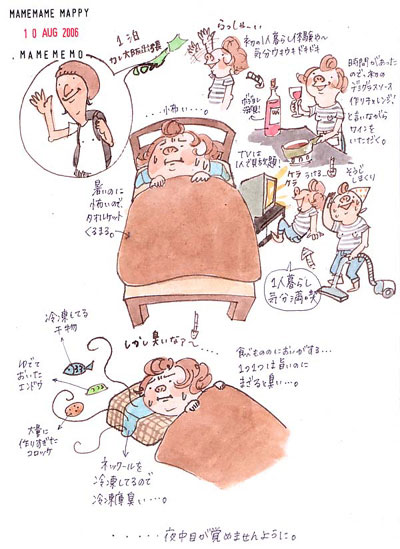 MAMEMAME MAPPY
10 AUG 2006
MAMEMEMO
1泊
大阪出張
らっしゃーい
初の1人暮らし体験や〜
気分ウキウキドキドキ
時間があった
ので、初の
デミグラスソース
作りチャレンジ!
と言いながら
ワインを
いただく。
…怖い…。
TVは
1人で見放題!
ケラ
ケラ
うける〜
そうじ
しまくり
暑いのに
怖いので
タオルケット
くるまる。
1人暮らし
気分満喫
冷凍してる
干物
しかし臭いな?〜
ゆでて
おいた
エンドウ
食べもののにおいがする…
1つ1つは旨いのに
まざると臭い…。
大量に
作りすぎた
コロッケ
ネックールを
冷凍してるので
冷凍庫臭い…。
・・・・・夜中目が覚めませんように。